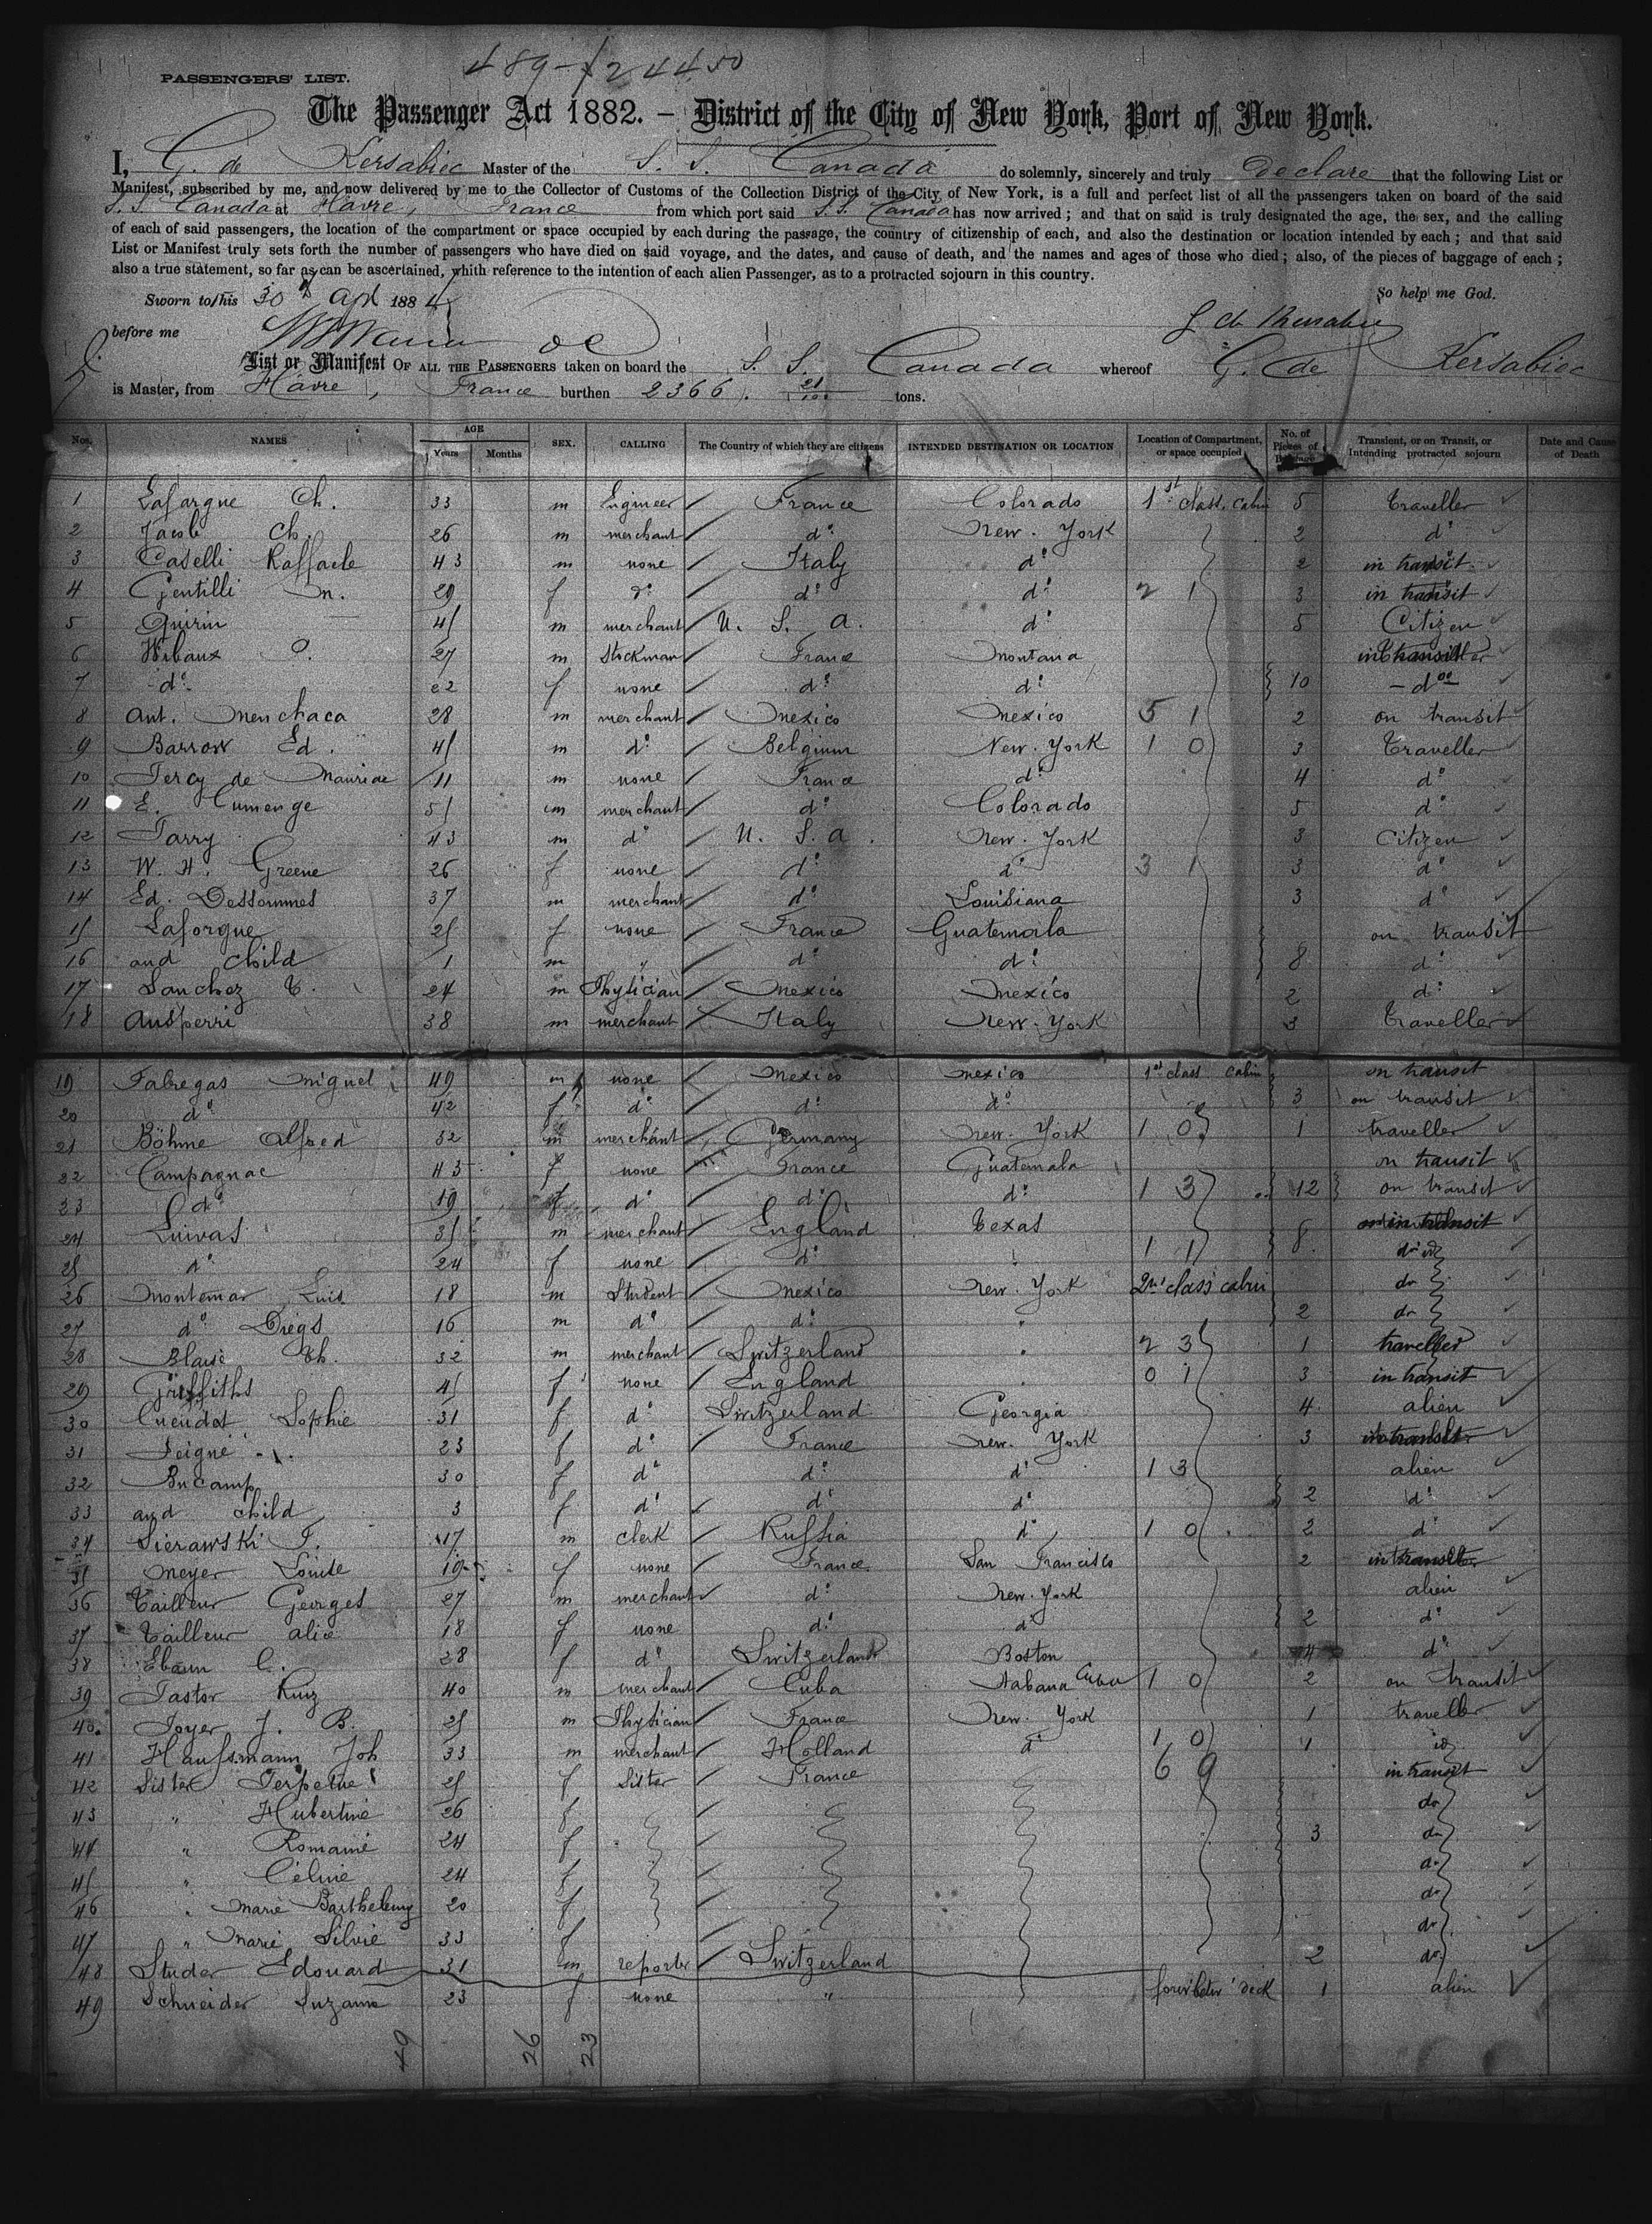 PASSENGERS' LIST.
The Passenger Act 1882. – District of the City of New York, Port of New York.
I, G. de Kersabiec Master of the S. S. Canada do solemnly, sincerely and truly declare that the following List or
Manifest, subscribed by me, and now delivered by me to the Collector of Customs of the Collection District of the City of New York, is a full and perfect list of all the passengers taken on board of the said
S. S. Canada at Havre, France from which port said S. S. Canada has now arrived; and that on said is truly designated the age, the sex, and the calling
of each of said passengers, the location of the compartment or space occupied by each during the passage, the country of citizenship of each, and also the destination or location intended by each; and that said
List or Manifest truly sets forth the number of passengers who have died on said voyage, and the dates, and cause of death, and the names and ages of those who died; also, of the pieces of baggage of each;
also a true statement, so far as can be ascertained, whith reference to the intention of each alien Passenger, as to a protracted sojourn in this country.
Sworn to this 30 Apl 1884 So help me God.
before me
List or Manifest OF ALL THE PASSENGERS taken on board the S. S. Canada whereof G. de Kersabiec
is Master, from Havre, France burthen 2366 tons.
Nos. NAMES AGE Years Months SEX. CALLING The Country of which they are citizens INTENDED DESTINATION OR LOCATION Location of Compartment, or space occupied No. of Pieces of Baggage Transient, or on Transit, or Intending protracted sojourn Date and Cause of Death
1 Lafargue Ch. 33 m Engineer France Colorado 1st class cabin 5 traveller
2 Jacob Ch. 26 m merchant do New. York 2 do
3 Caselli Raffaele 43 m none Italy do 2 in transit
4 Gentilli m. 29 f do do do 2 1 3 in transit
5 Quirin 45 m merchant U. S. a. do 5 Citizen
6 Wibaux P. 27 m Stockman France Montana
7 do 22 f none do do 10 do
8 Ant. Menchaca 28 m merchant Mexico Mexico 5 1 2 on transit
9 Barrow Ed. 45 m do Belgium New. York 1 0 3 traveller
10 Tercy de Mauriac 11 m none France do 4 do
11 E. Cumenge 55 m merchant do Colorado 5 do
12 Tarry 43 m do U. S. a. New. York 3 Citizen
13 W. H. Greene 26 f none do do 3 1 3 do
14 Ed. Dessommes 37 m merchant do Louisiana 3 do
15 Laforgue 25 f none France Guatemala on transit
16 and child 1 m " do do 8 do
17 Sanchez T. 24 m Physician Mexico Mexico 2 do
18 Ausperri 38 m merchant Italy New. York 3 traveller
19 Fabregas Miguel 49 m none Mexico Mexico 1st class cabin on transit
20 do 42 f do do do 3 on transit
21 Böhme Alfred 32 m merchant Germany New. York 1 0 1 traveller
22 Campagnac 43 f none France Guatemala on transit
23 do 19 f do do do 1 3 12 on transit
24 35 m merchant England Texas
25 do 24 f none do 1 1 8
26 Montemar Luis 18 m Student Mexico New. York 2nd class cabin do
27 do Diego 16 m do do " 2 do
28 Blaise Th. 32 m merchant Switzerland " 2 3 1 traveller
29 Griffiths 45 f none England " 0 1 3 in transit
30 Cuendot Sophie 31 f do Switzerland Georgia 4 alien
31 Feigné 23 f do France New. York 3
32 Bucamp 30 f do do do 1 3 alien
33 and child 3 f do do do 2 do
34 Sierawski T. 17 m clerk Russia do 1 0 2 do
35 Meyer Louise 19 f none France San Francisco 2
36 Tailleur Georges 27 m merchant do New. York alien
37 Tailleur Alice 18 f none do do 2 do
38 Ebaun C. 28 f do Switzerland Boston 4 do
39 Pastor Ruiz 40 m merchant Cuba Habana Cuba 1 0 2 on transit
40 Joyer J. B. 25 m Physician France New. York 1 traveller
41 Haussmann Joh 33 m merchant Holland do 1 0 1 id
42 Sister Perpetue 25 f Sister France 6 9 in transit
43 " Hubertine 26 f do
44 " Romaine 24 f 3 do
45 " Céline 24 f do
46 " Marie Barthelemy 20 f do
47 " Marie Silvie 33 f do
48 Studer Edouard 31 m reporter Switzerland 2 do
49 Schneider Suzanne 23 f none " 1 alien
49 26 23